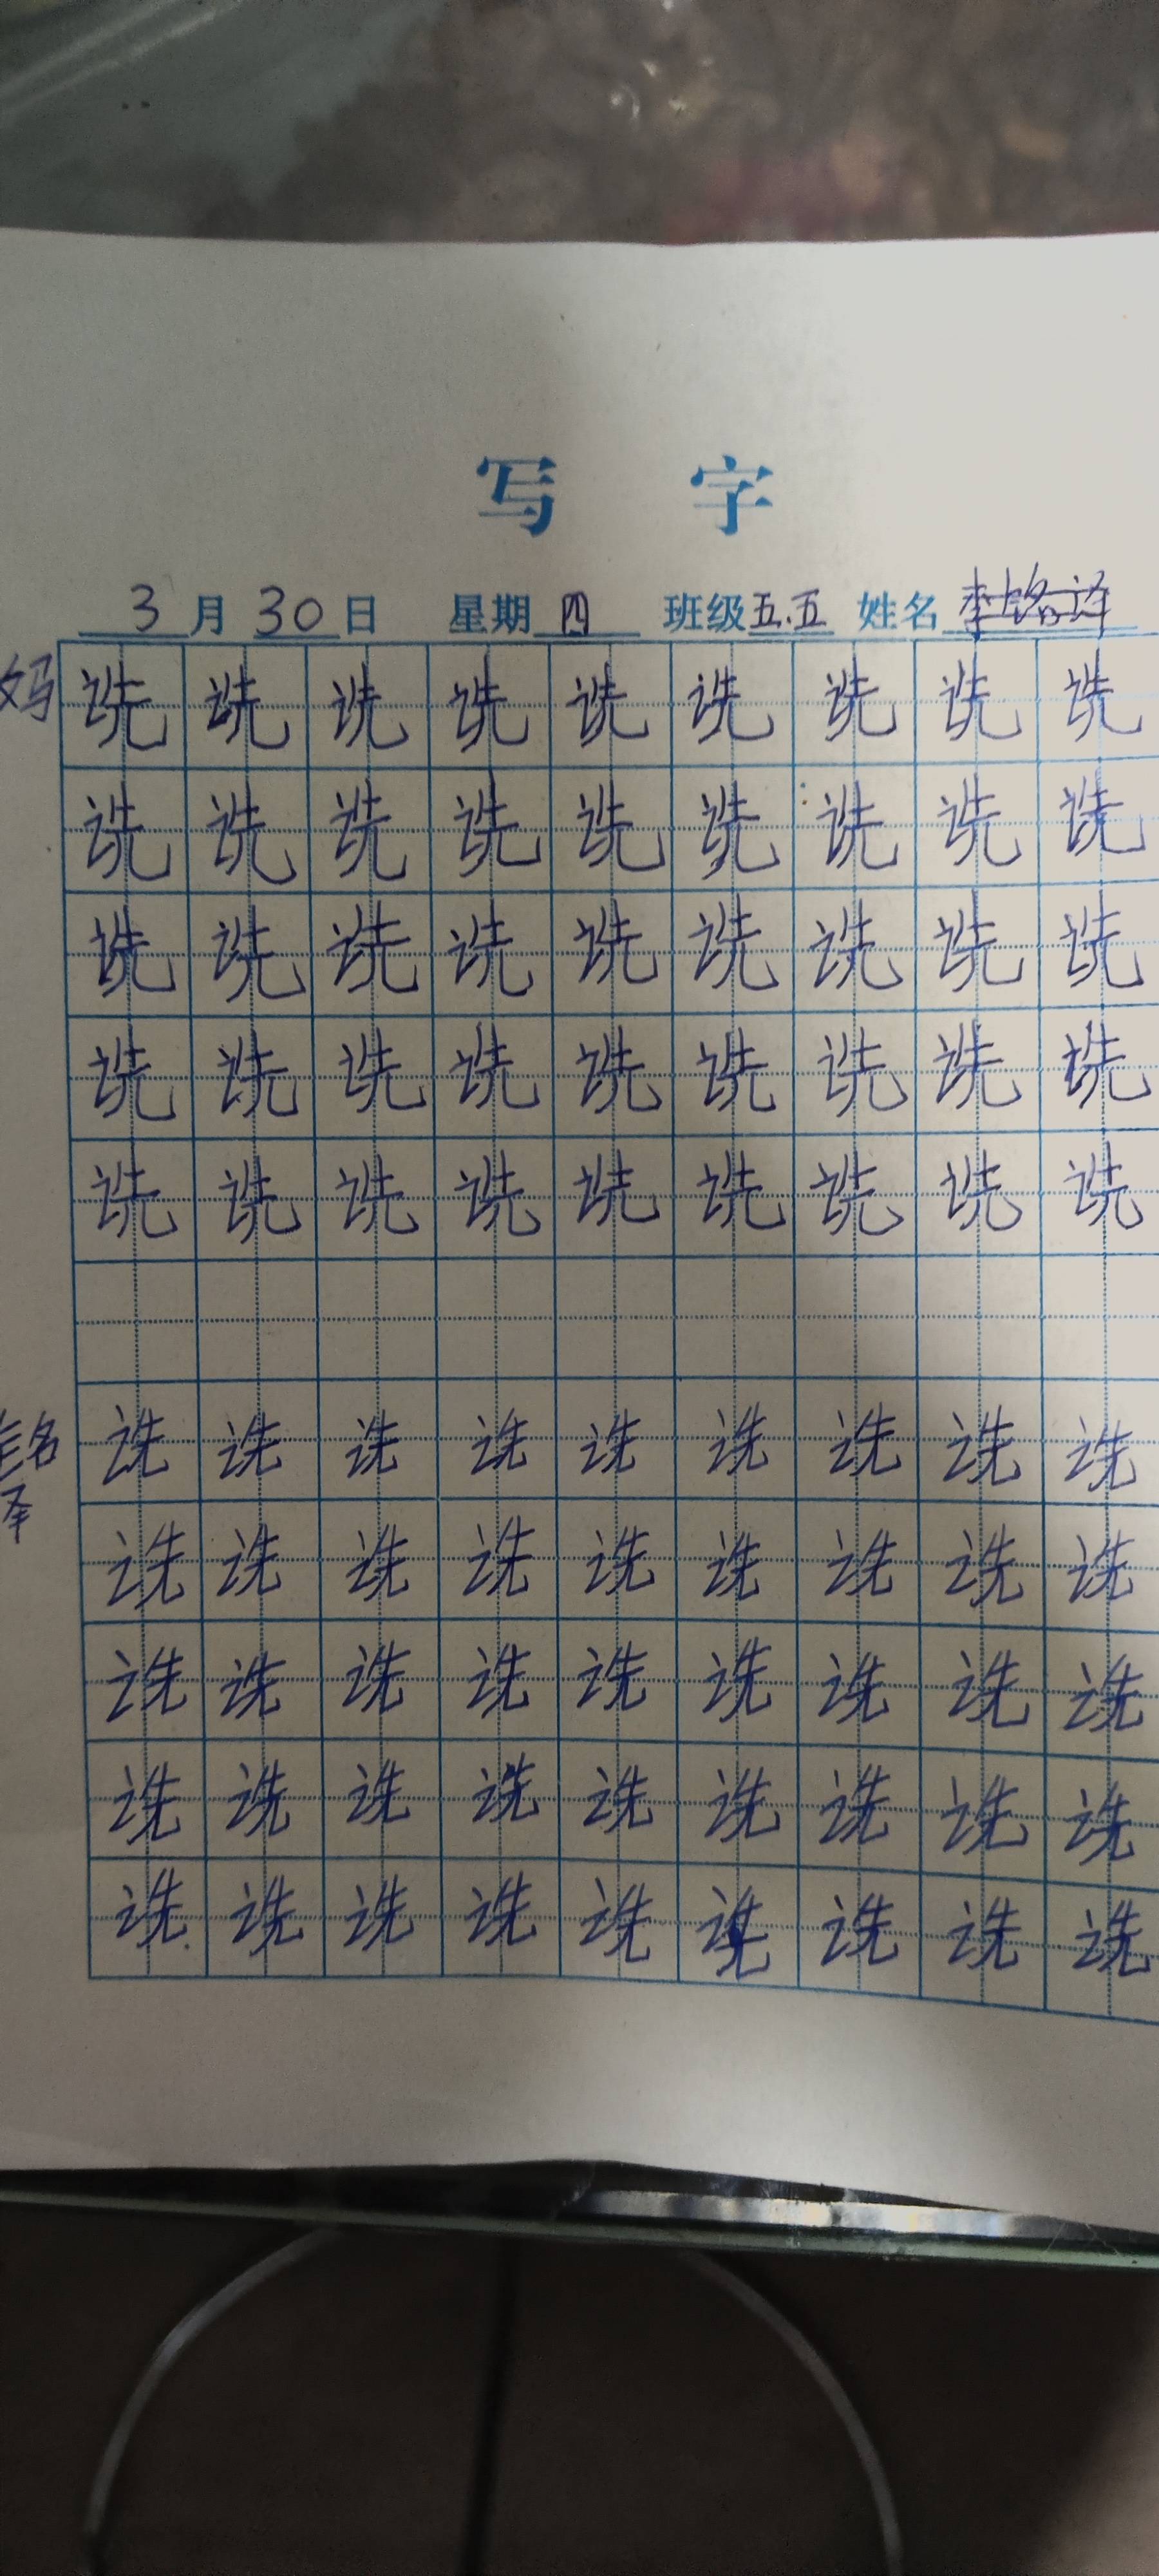 写 字
3月30日 星期四 班级五.五 姓名
妈
诜诜诜诜诜诜诜诜诜
诜诜诜诜诜诜诜诜诜
诜诜诜诜诜诜诜诜诜
诜诜诜诜诜诜诜诜诜
诜诜诜诜诜诜诜诜诜
诜诜诜诜诜诜诜诜诜
诜诜诜诜诜诜诜诜诜
诜诜诜诜诜诜诜诜诜
诜诜诜诜诜诜诜诜诜
诜诜诜诜诜诜诜诜诜